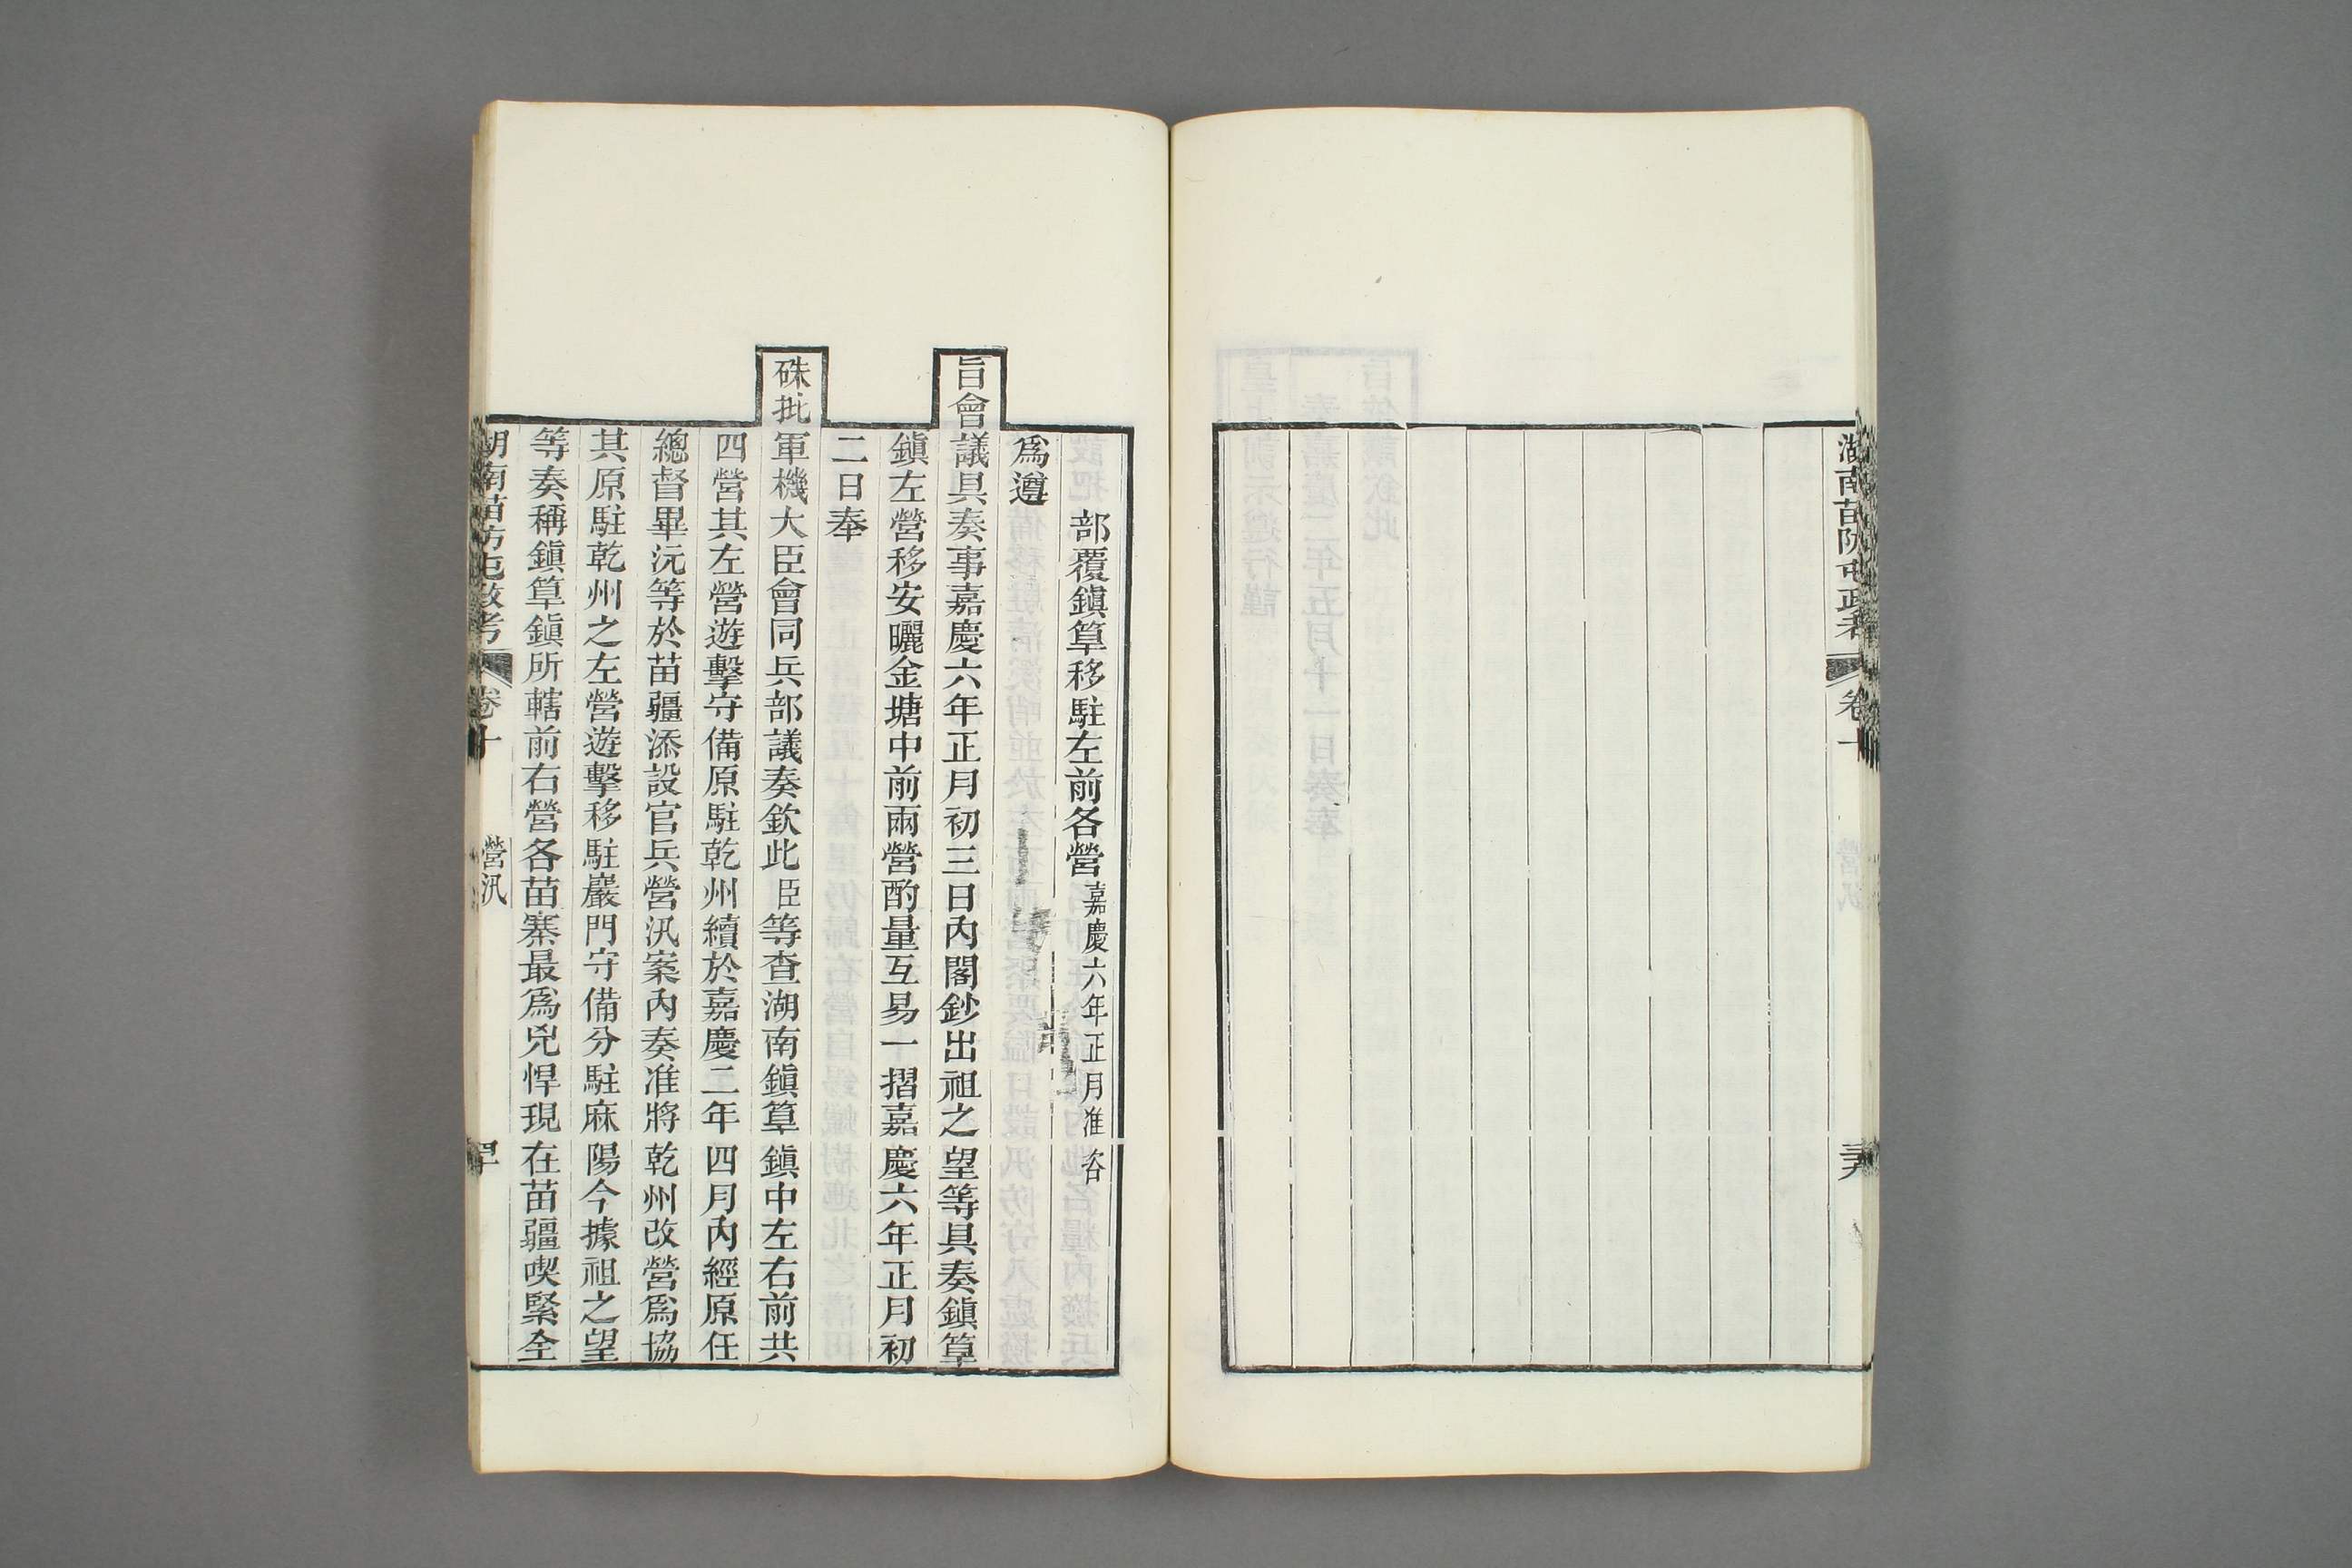 湖南苗防屯政考
卷十
部覆鎮筸移駐左前各營嘉慶六年正月准咨
爲遵
旨會議具奏事嘉慶六年正月初三日內閣鈔出祖之望等具奏鎮筸
鎮左營移安曬金塘中前兩營酌量互易一摺嘉慶六年正月初
二日奉
硃批軍機大臣會同兵部議奏欽此臣等查湖南鎮筸鎮中左右前共
四營其左營遊擊守備原駐乾州續於嘉慶二年四月內經原任
總督畢沅等於苗疆添設官兵營汛案內奏准將乾州改營爲協
其原駐乾州之左營遊擊移駐巖門守備分駐麻陽今據祖之望
等奏稱鎮筸鎮所轄前右營各苗寨最爲兇悍現在苗疆喫緊全
湖南苗防屯政考
卷十
營汛